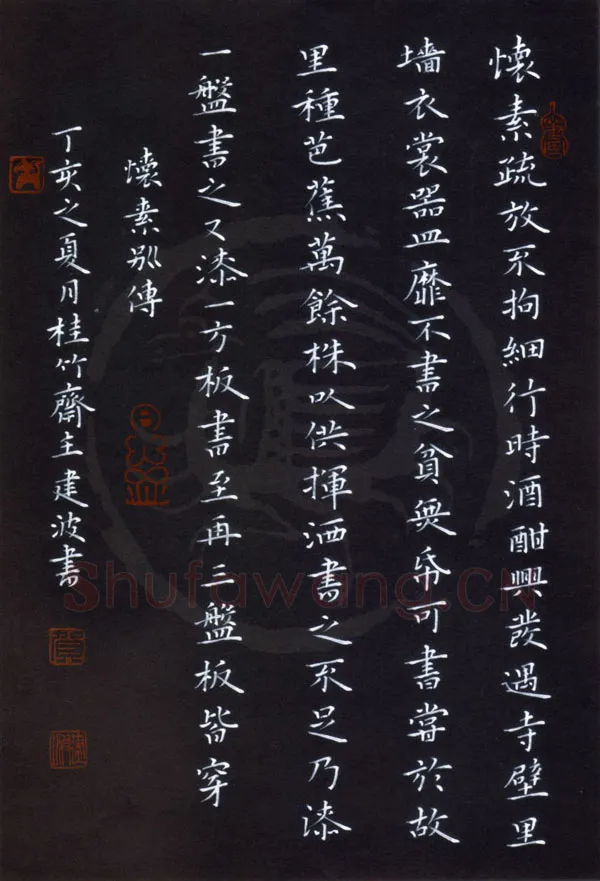 懷素疏放不拘細行時酒酣興發遇寺壁里
墻衣裳器皿靡不書之貧無帋可書嘗於故
里種芭蕉萬餘株以供揮洒書之不足乃漆
一盤書之又漆一方板書至再三盤板皆穿
懷素別傳
丁亥之夏月桂竹齋主建波書
Shufawang.CN